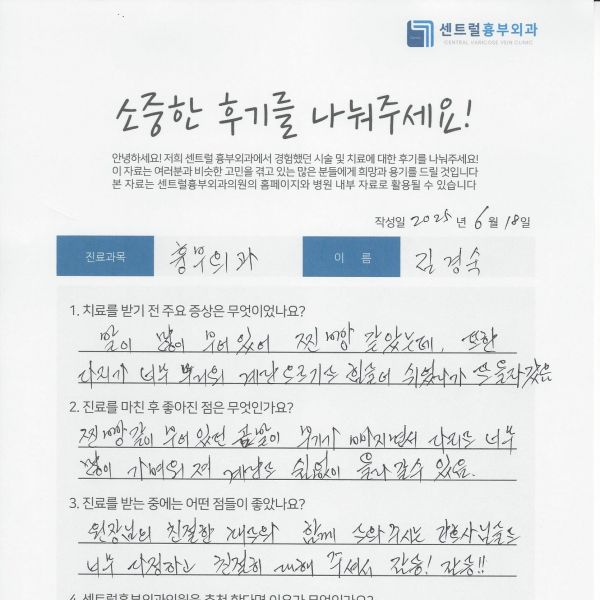 센트럴흉부외과
CENTRAL VARICOSE VEIN CLINIC
소중한 후기를 나눠주세요!
안녕하세요! 저희 센트럴 흉부외과에서 경험했던 시술 및 치료에 대한 후기를 나눠주세요!
이 자료는 여러분과 비슷한 고민을 겪고 있는 많은 분들에게 희망과 용기를 드릴 것입니다
본 자료는 센트럴흉부외과의원의 홈페이지와 병원 내부 자료로 활용될 수 있습니다
작성일 2025 년 6 월 18 일
진료과목 흉부외과 이 름 김경숙
1. 치료를 받기 전 주요 증상은 무엇이었나요?
발이 많이 부어 있어 찐빵 같았는데, 또한
다리가 너무 계단 오르기는 힘들어 쉬었다가 또 올라갔음
2. 진료를 마친 후 좋아진 점은 무엇인가요?
찐빵같이 부어 있던 발이 붓기가 빠지면서 다리도 너무
많이 가벼워져 계단도 쉼없이 올라 갈수 있음.
3. 진료를 받는 중에는 어떤 점들이 좋았나요?
원장님의 친절한 함께 도와주시는 간호사님들도
너무 다정하고 친절히 대해 주셔서 감동! 감동!!
4. 센트럴흉부외과의원을 추천 한다면 이유가 무엇인가요?